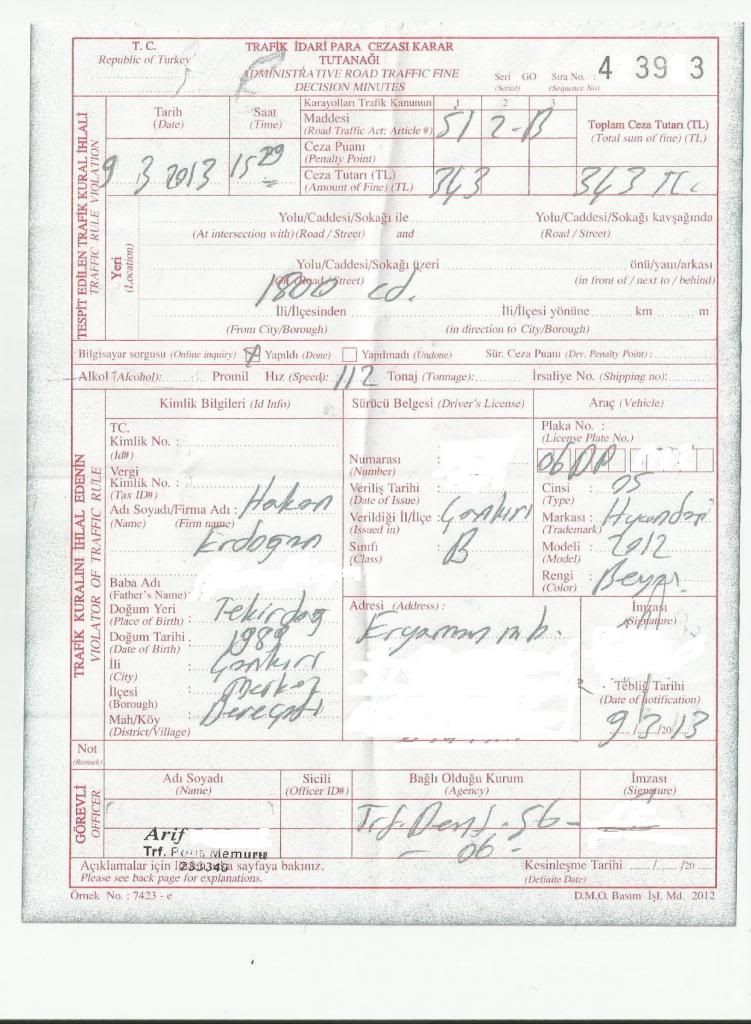 T. C.
Republic of Turkey
TRAFİK İDARİ PARA CEZASI KARAR
TUTANAĞI
ADMINISTRATIVE ROAD TRAFFIC FINE
DECISION MINUTES
Seri GO Sıra No. :
(Serial) (Sequence No)
4 39 3
TESPİT EDİLEN TRAFİK KURAL İHLALİ
TRAFFIC RULE VIOLATION
Tarih
(Date)
9 3 2013
Saat
(Time)
15 29
Karayolları Trafik Kanunun 1 2 3
Maddesi
(Road Traffic Act; Article #)
51 2-B
Ceza Puanı
(Penalty Point)
Ceza Tutarı (TL)
(Amount of Fine) (TL)
343
Toplam Ceza Tutarı (TL)
(Total sum of fine) (TL)
343 TL
Yeri
(Location)
Yolu/Caddesi/Sokağı ile Yolu/Caddesi/Sokağı kavşağında
(At intersection with) (Road / Street) and (Road / Street)
Yolu/Caddesi/Sokağı üzeri önü/yanı/arkası
(Road / Street) (in front of / next to / behind)
1800 cd.
İli/İlçesinden İli/İlçesi yönüne km m
(From City/Borough) (in direction to City/Borough)
Bilgisayar sorgusu (Online inquiry) Yapıldı (Done) Yapılmadı (Undone) Sür. Ceza Puanı (Drv. Penalty Point) :
Alkol (Alcohol): Promil Hız (Speed): 112 Tonaj (Tonnage): İrsaliye No. (Shipping no):
TRAFİK KURALINI İHLAL EDENİN
VIOLATOR OF TRAFFIC RULE
Kimlik Bilgileri (Id Info)
TC.
Kimlik No. :
(Id#)
Vergi
Kimlik No. :
(Tax ID#)
Adı Soyadı/Firma Adı : Hakan
(Name) (Firm name)
Erdoğan
Baba Adı
(Father's Name)
Doğum Yeri : Tekirdağ
(Place of Birth)
Doğum Tarihi : 1989
(Date of Birth)
İli : Çankırı
(City)
İlçesi : Merkez
(Borough)
Mah/Köy
(District/Village)
Sürücü Belgesi (Driver's License)
Numarası :
(Number)
Veriliş Tarihi :
(Date of Issue)
Verildiği İl/İlçe : Çankırı
(Issued in)
Sınıfı : B
(Class)
Araç (Vehicle)
Plaka No. :
(License Plate No.)
06
Cinsi :
(Type)
Markası : Hyundai
(Trademark)
Modeli : 2012
(Model)
Rengi : Beyaz
(Color)
Adresi (Address) :
Eryaman mh.
İmzası
(Signature)
Tebliğ Tarihi
(Date of notification)
9/3/2013
Not
(Remark)
GÖREVLİ
OFFICER
Adı Soyadı
(Name)
Sicili
(Officer ID#)
Bağlı Olduğu Kurum
(Agency)
İmzası
(Signature)
Arif
Trf. Polis Memuru
231346
Trf. Den.
-06-
Açıklamalar için lütfen arka sayfaya bakınız.
Please see back page for explanations.
Kesinleşme Tarihi ....../....../20 ......
(Definite Date)
Örnek No. : 7423 - e
D.M.O. Basım İşl. Md. 2012